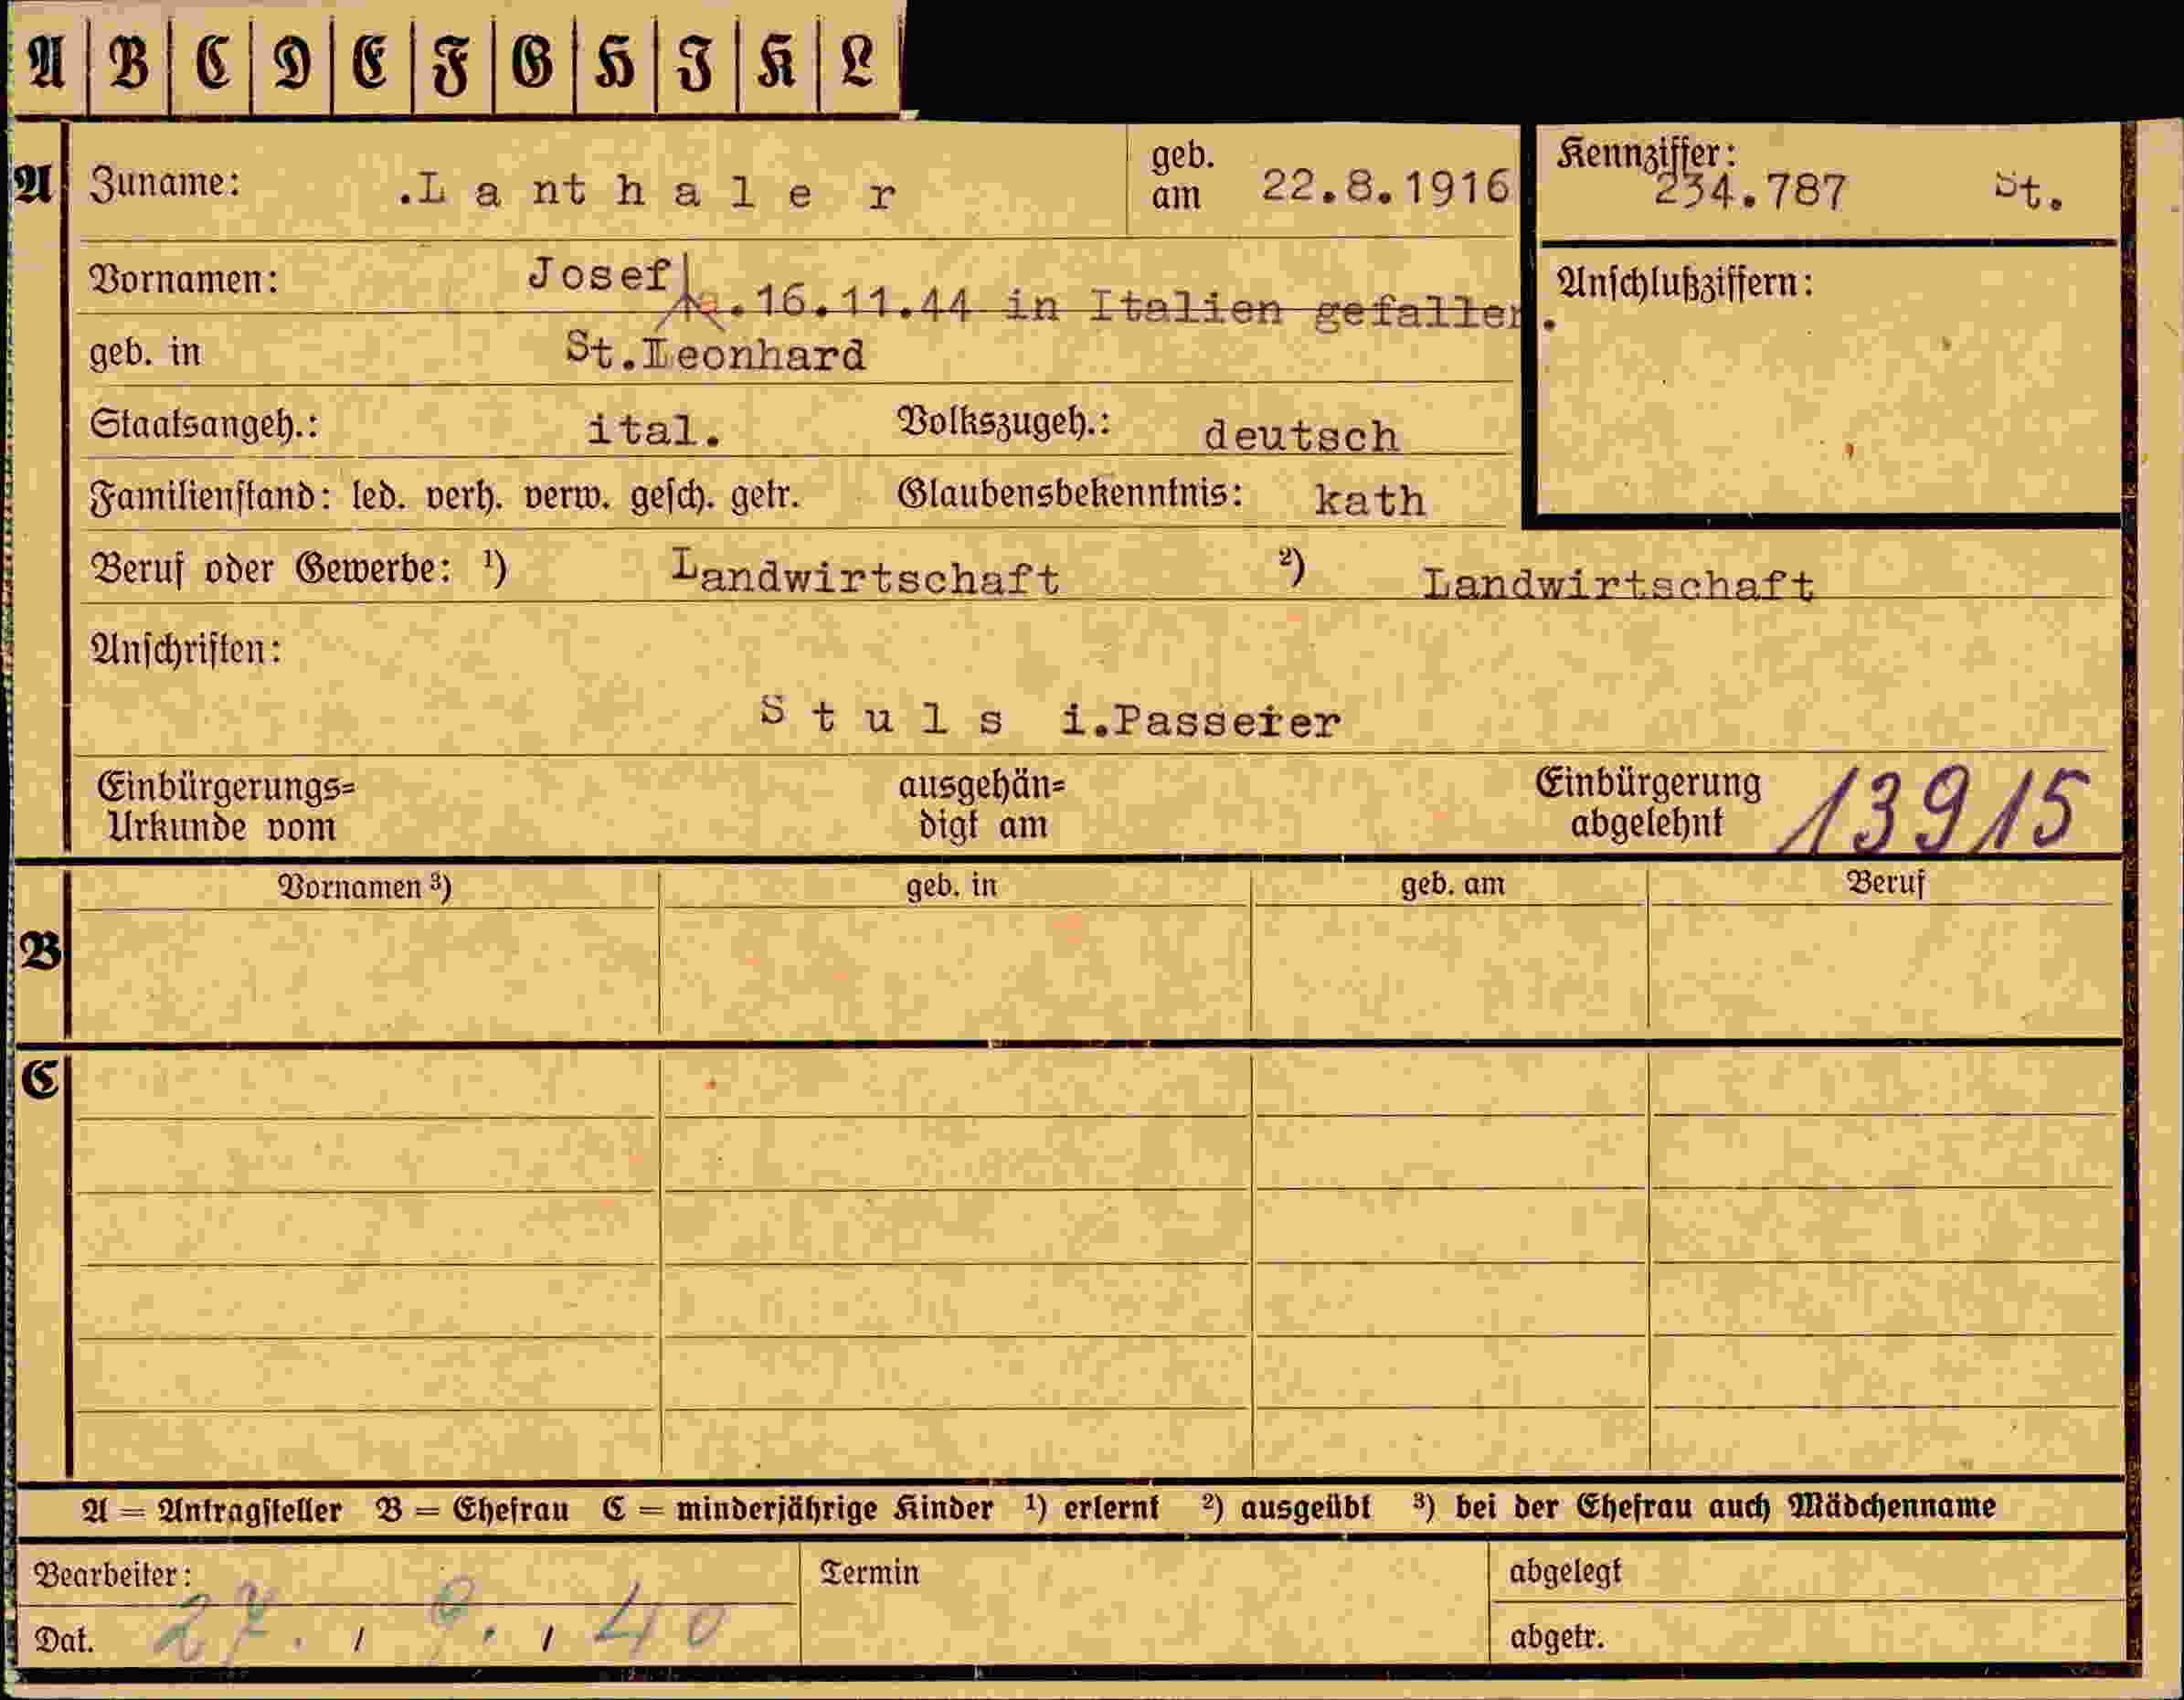 A B C D E F G H I K L
A Zuname: .L a nt h a l e r geb. am 22.8.1916 Kennziffer: 234.787 St.
Vornamen: Josef
.16.11.44 in Italien gefallen.
Anschlußziffern:
geb. in St.Leonhard
Staatsangeh.: ital. Volkszugeh.: deutsch
Familienstand: led. verh. verw. gesch. getr. Glaubensbekenntnis: kath
Beruf oder Gewerbe: ¹) Landwirtschaft ²) Landwirtschaft
Anschriften:
S t u l s i.Passeier
Einbürgerungs= ausgehän= Einbürgerung 13915
Urkunde vom digt am abgelehnt
Vornamen ³) geb. in geb. am Beruf
B
C
A = Antragsteller B = Ehefrau C = minderjährige Kinder ¹) erlernt ²) ausgeübt ³) bei der Ehefrau auch Mädchenname
Bearbeiter: Termin abgelegt
Dat. 27. 9. 40 abgetr.